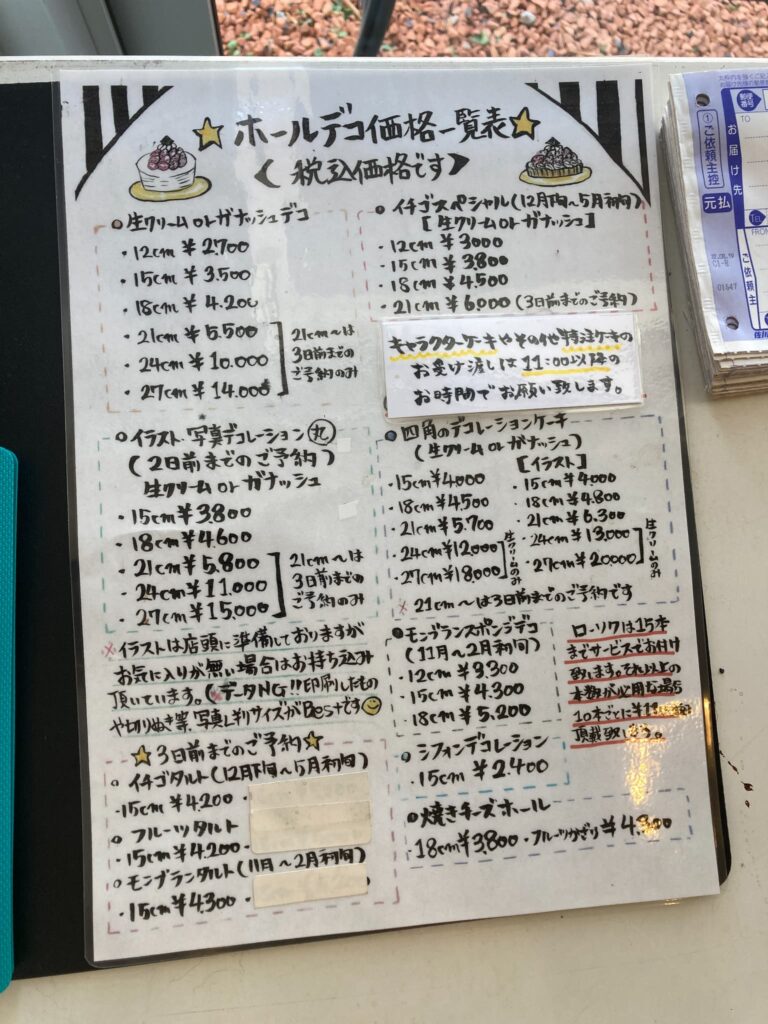 ホールデコ価格一覧表
〈税込価格です〉
○生クリームorガナッシュデコ
・12cm ¥2.700
・15cm ¥3.500
・18cm ¥4.200
・21cm ¥5.500
・24cm ¥10.000
・27cm ¥14.000
21cm〜は
3日前までの
ご予約のみ
○イチゴスペシャル(12月下旬〜5月初旬)
[生クリームorガナッシュ]
・12cm ¥3000
・15cm ¥3.800
・18cm ¥4.500
・21cm ¥6.000 (3日前までのご予約)
キャラクターケーキやその他特注ケーキの
お受け渡しは11:00以降の
お時間でお願い致します。
○イラスト・写真デコレーション丸
(2日前までのご予約)
生クリームorガナッシュ
・15cm ¥3.800
・18cm ¥4.600
・21cm ¥5.800
・24cm ¥11.000
・27cm ¥15.000
21cm〜は
3日前までの
ご予約のみ
※イラストは店頭に準備しておりますが
お気に入りが無い場合はお持ち込み
頂いています。(※データNG!!印刷したもの
や切りぬき等、写真L判サイズがBestです
○四角のデコレーションケーキ
(生クリームorガナッシュ)
・15cm ¥4000
・18cm ¥4.500
・21cm ¥5.700
・24cm ¥12000
・27cm ¥18.000
生クリームのみ
[イラスト]
・15cm ¥4.000
・18cm ¥4.800
・21cm ¥6.300
・24cm ¥13.000
・27cm ¥20.000
生クリームのみ
※21cm〜は3日前までのご予約です
○モンブランスポンジデコ
(11月〜2月初旬)
・12cm ¥3.300
・15cm ¥4.300
・18cm ¥5.200
ローソクは15本
までサービスでお付け
致します。それ以上の
本数が必用な場合
10本ごとに
頂戴致します。
○シフォンデコレーション
・15cm ¥2.400
○焼きチーズホール
・18cm ¥3.800・フルーツかざり ¥4.300
3日前までのご予約
○イチゴタルト(12月下旬〜5月初旬)
・15cm ¥4.200・
○フルーツタルト
・15cm ¥4.200・
○モンブランタルト(11月〜2月初旬)
・15cm ¥4300・
①ご依頼主控
元払
郵便番号
TO
お届け先
TEL
FROM
ご依頼主
01547